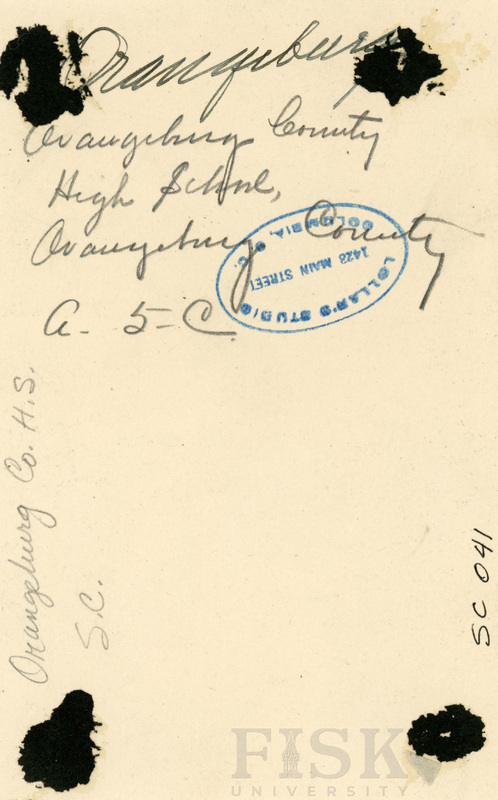 Orangeburg
Orangeburg County
High School,
Orangeburg County
A - 5 - C
LOLLAR'S STUDIO
1423 MAIN STREET
COLUMBIA, S.C.
Orangeburg Co. H.S.
S.C.
SC 041
FISK
UNIVERSITY